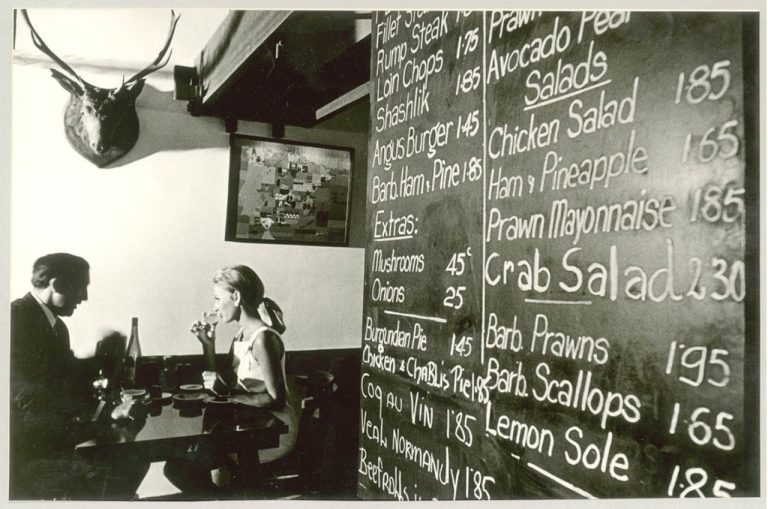 Fillet
Rump Steak
Loin Chops 1·75
Shashlik 1·85
Angus Burger 1·45
Barb. Ham & Pine 1·85
Extras:
Mushrooms 45c
Onions 25
Burgundian Pie 1·45
Chicken & Chablis Pie 1·85
Coq au Vin 1·85
Veal Normandy 1·85
Prawn
Avocado Pear
Salads
Chicken Salad 1·85
Ham & Pineapple 1·65
Prawn Mayonnaise 1·85
Crab Salad 2·30
Barb. Prawns 1·95
Barb. Scallops 1·65
Lemon Sole 1·85